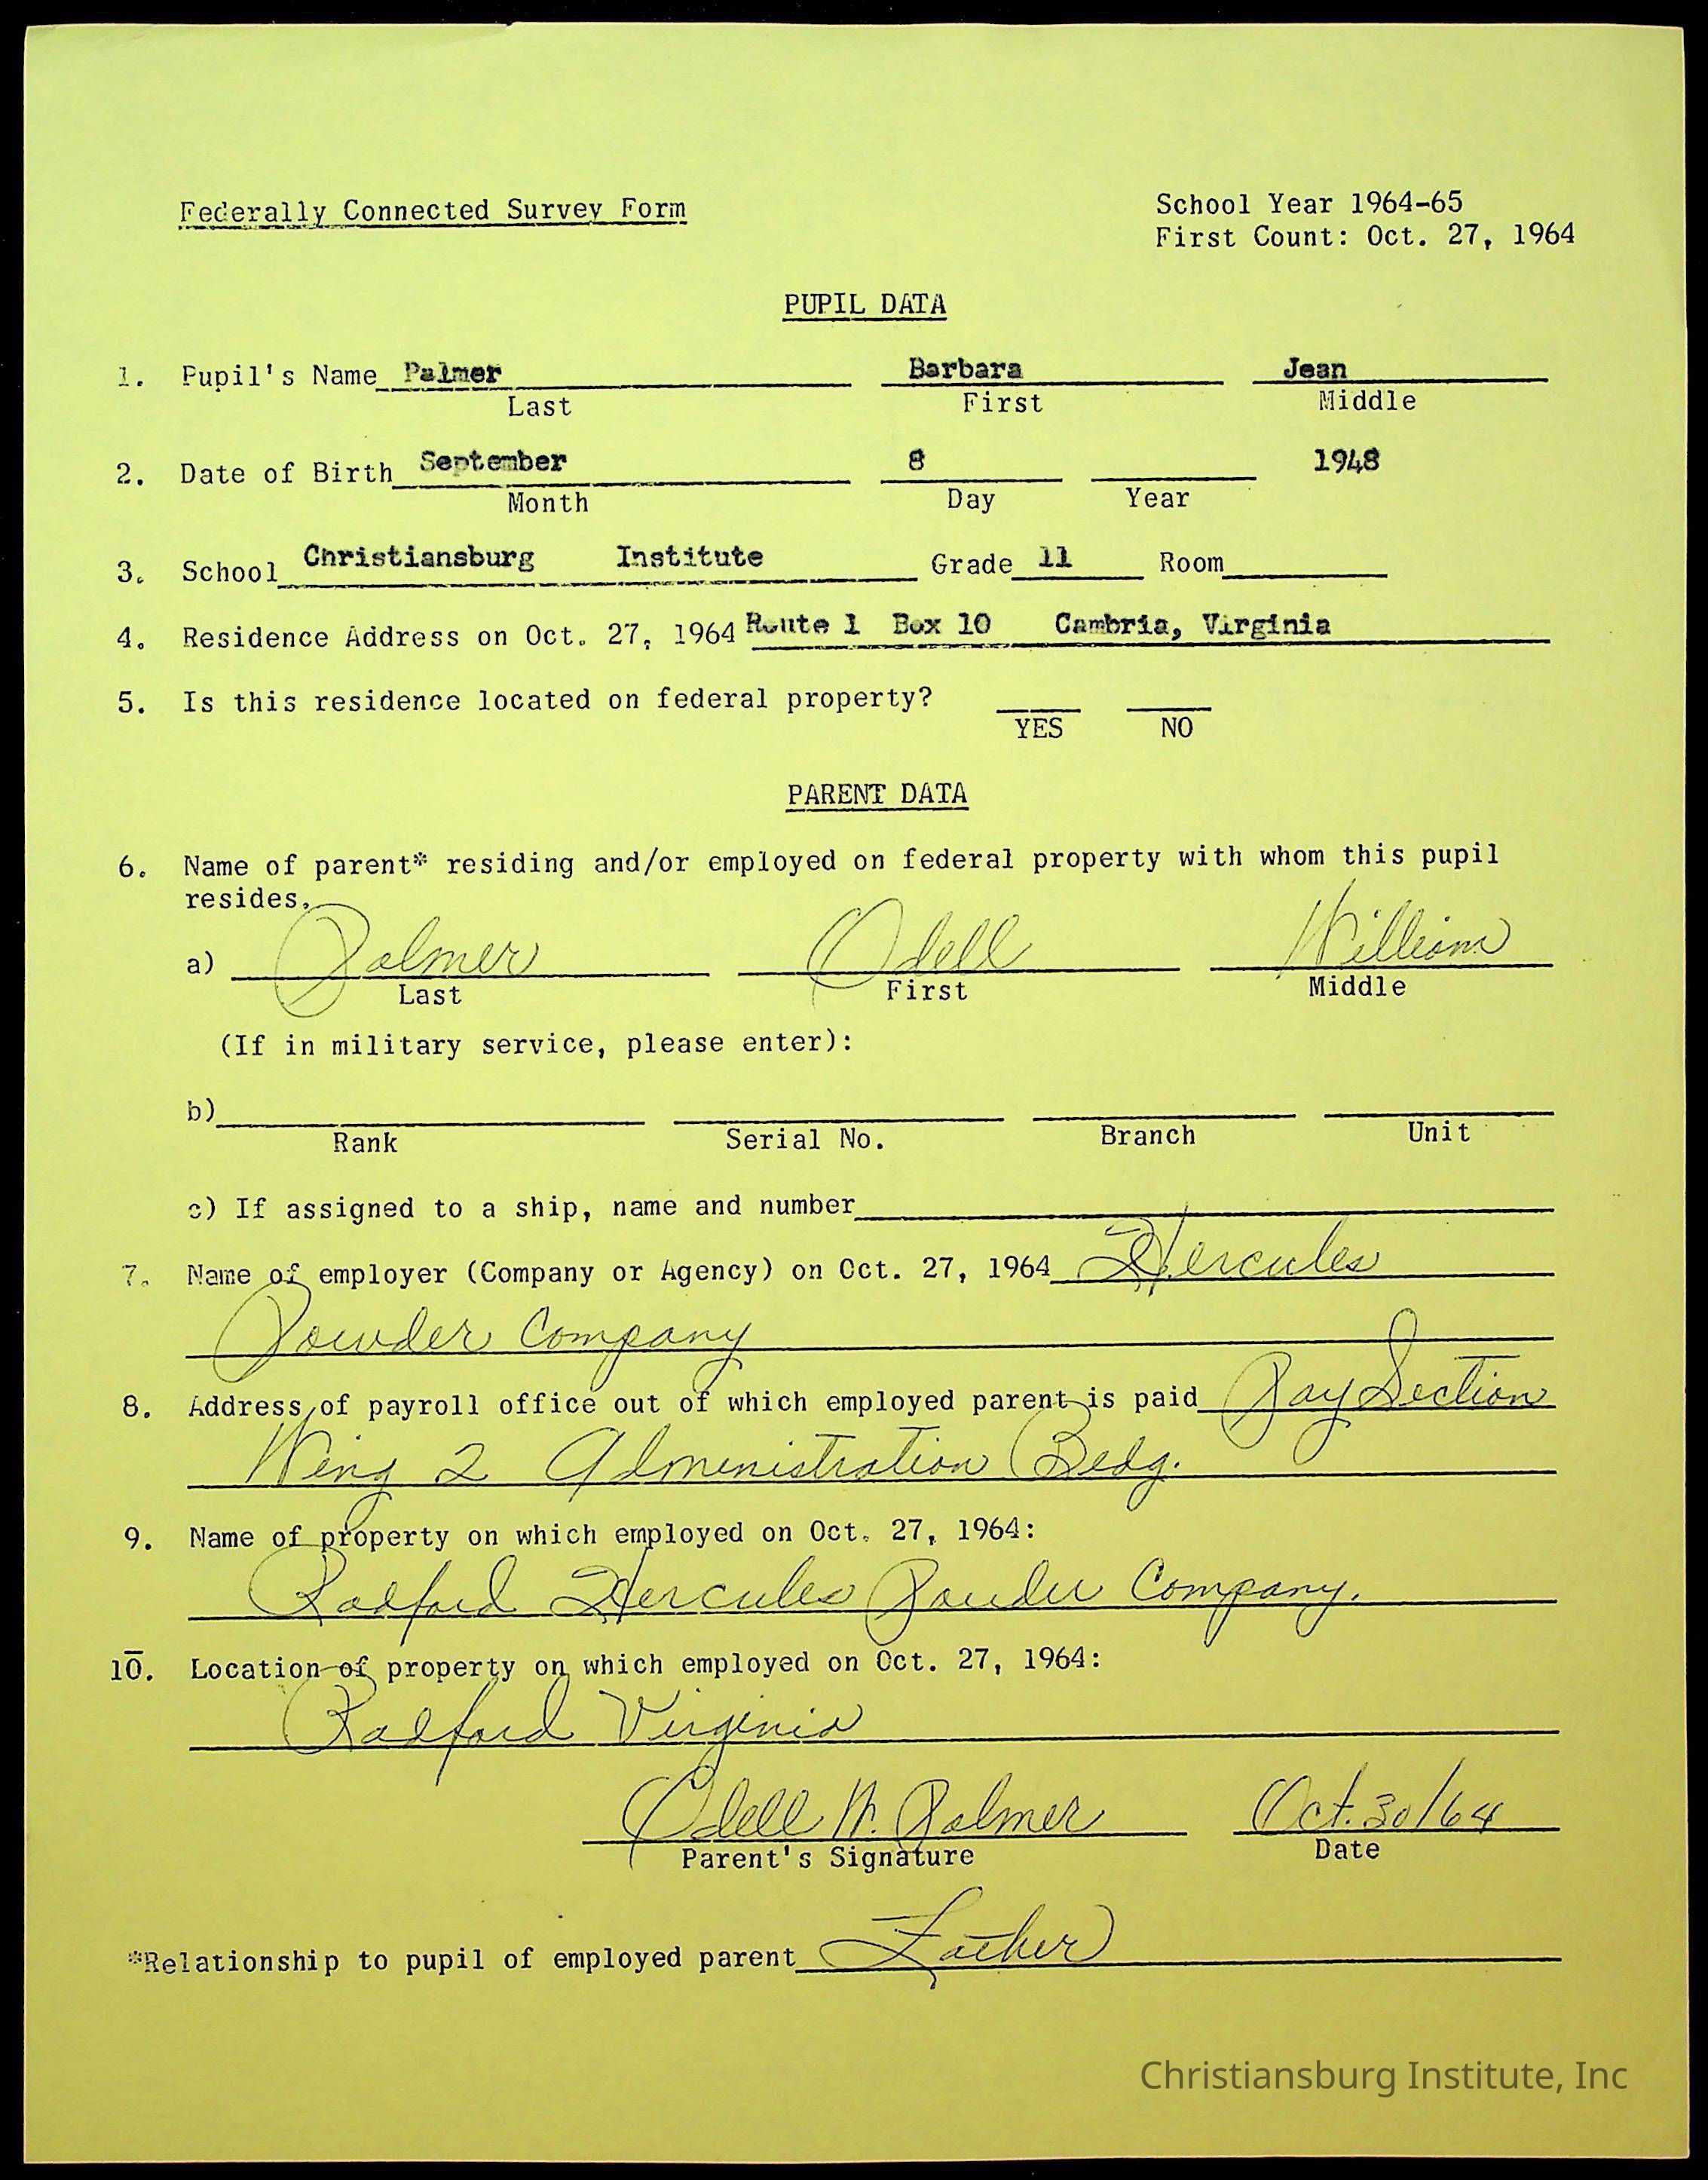 Federally Connected Survey Form
School Year 1964-65
First Count: Oct. 27, 1964
PUPIL DATA
1. Pupil's Name Palmer Barbara Jean
Last First Middle
2. Date of Birth September 8 1948
Month Day Year
3. School Christiansburg Institute Grade 11 Room
4. Residence Address on Oct. 27, 1964 Route 1 Box 10 Cambria, Virginia
5. Is this residence located on federal property?
YES NO
PARENT DATA
6. Name of parent* residing and/or employed on federal property with whom this pupil
resides.
a) Palmer Odell William
Last First Middle
(If in military service, please enter):
b)
Rank Serial No. Branch Unit
c) If assigned to a ship, name and number
7. Name of employer (Company or Agency) on Oct. 27, 1964 Hercules
Powder Company
8. Address of payroll office out of which employed parent is paid Pay Section
Wing 2 Administration Bldg.
9. Name of property on which employed on Oct. 27, 1964:
Radford Hercules Powder Company.
10. Location of property on which employed on Oct. 27, 1964:
Radford Virginia
Odell W. Palmer Oct. 30/64
Parent's Signature Date
*Relationship to pupil of employed parent Father
Christiansburg Institute, Inc